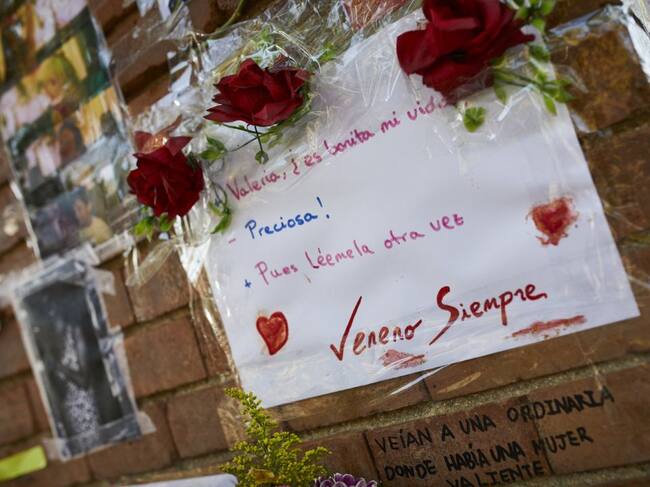 Valeria, ¿es bonita mi vida
- Preciosa!
+ Pues Léemela otra vez
Veneno Siempre
VEÍAN A UNA ORDINARIA
DONDE HABÍA UNA MUJER
VALIENTE